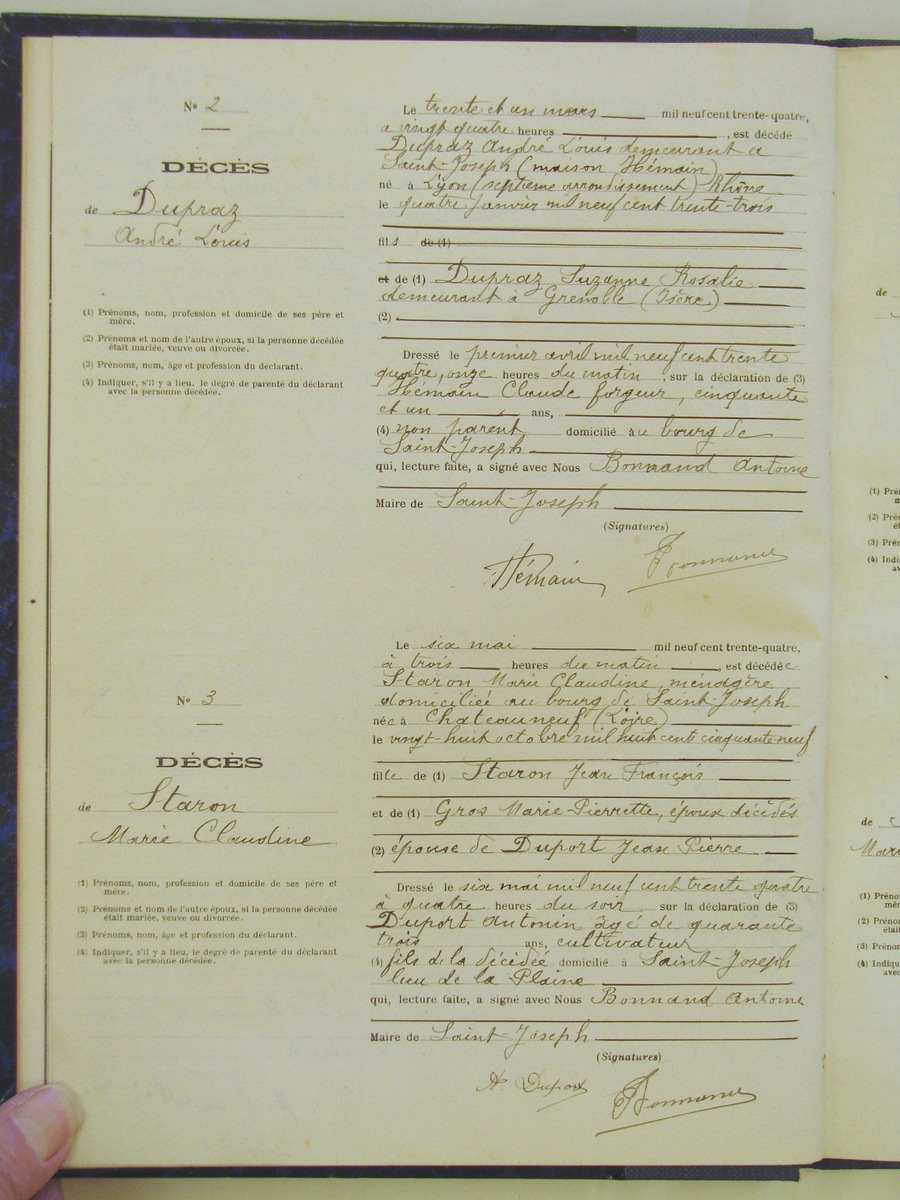 N° 2
DÉCÈS
de Dupraz
André Louis
(1) Prénoms, nom, profession et domicile de ses père et
mère.
(2) Prénoms et nom de l'autre époux, si la personne décédée
était mariée, veuve ou divorcée.
(3) Prénoms, nom, âge et profession du déclarant.
(4) Indiquer, s'il y a lieu, le degré de parenté du déclarant
avec la personne décédée.
Le trente et un mars mil neuf cent trente-quatre,
a vingt quatre heures , est décédé
Dupraz André Louis demeurant a
Saint-Joseph (maison Hémain)
né à Lyon (septième arrondissement) Rhône
le quatre Janvier mil neuf cent trente-trois
fils de (1)
et de (1) Dupraz Suzanne Rosalie
demeurant à Grenoble (Isère)
(2)
Dressé le premier avril mil neuf cent trente
quatre, onze heures du matin , sur la déclaration de (3)
Hémain Claude forgeur, cinquante
et un ans,
(4) non parent domicilié au bourg de
Saint-Joseph
qui, lecture faite, a signé avec Nous Bonnand Antoine
Maire de Saint-Joseph
(Signatures)
Hémain Bonnand
N° 3
DÉCÈS
de Staron
Marie Claudine
(1) Prénoms, nom, profession et domicile de ses père et
mère.
(2) Prénoms et nom de l'autre époux, si la personne décédée
était mariée, veuve ou divorcée.
(3) Prénoms, nom, âge et profession du déclarant.
(4) Indiquer, s'il y a lieu, le degré de parenté du déclarant
avec la personne décédée.
Le six mai mil neuf cent trente-quatre,
à trois heures du matin , est décédée
Staron Marie Claudine ménagère
domiciliée au bourg de Saint-Joseph
née à Chateauneuf (Loire)
le vingt-huit octobre mil huit cent cinquante-neuf
fille de (1) Staron Jean François
et de (1) Gros Marie-Pierrette, époux décédés
(2) épouse de Duport Jean Pierre
Dressé le six mai mil neuf cent trente quatre
à quatre heures du soir sur la déclaration de (3)
Duport Antonin âgé de quarante
trois ans, cultivateur
(4) fils de la décédée domicilié à Saint-Joseph
lieu de la Plaine
qui, lecture faite, a signé avec Nous Bonnand Antoine
Maire de Saint-Joseph
(Signatures)
A. Duport Bonnand
de
(1) Pré
(2) Pré
(3) Prén
(4) Indi
de
Mari
(1) Prénd
mèr
(2) Préno
étai
(3) Prénon
(4) Indiqu
avec